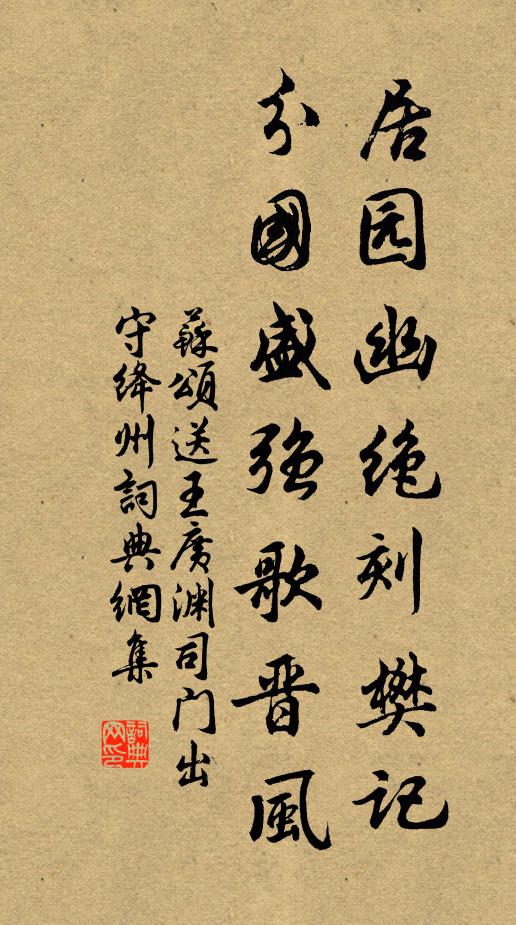 居园幽絶刻樊记
分國盛強歌晋風
蘇頌送王廣渊司门出
守绛州詞典網集
詞典网印